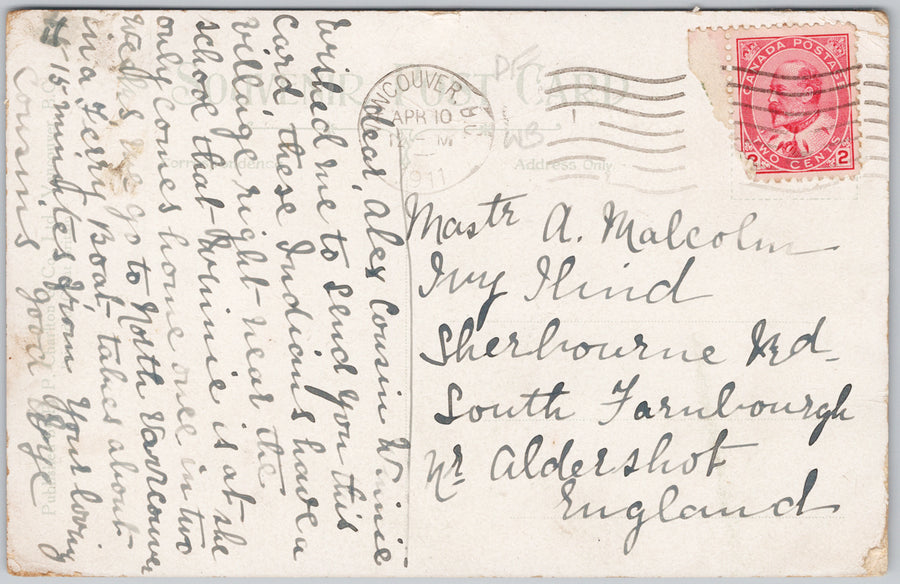 SOUVENIR POST CARD
Correspondence
Address Only
VANCOUVER, B.C.
APR 10
12 - M
1911
CANADA POSTAGE
TWO CENTS
2
WB
Mastr A. Malcolm
Ivy Hind
Sherbourne Rd
South Farnbourgh
Nr Aldershot
England
dear Alex Cousin Winnie
wished me to send you this
Card, these Indians have a
village right near the
school that Winnie is at she
only comes home once in two
weeks we go to North Vancouver
in a Ferry Boat takes about
15 minutes from your loving
Cousins good bye